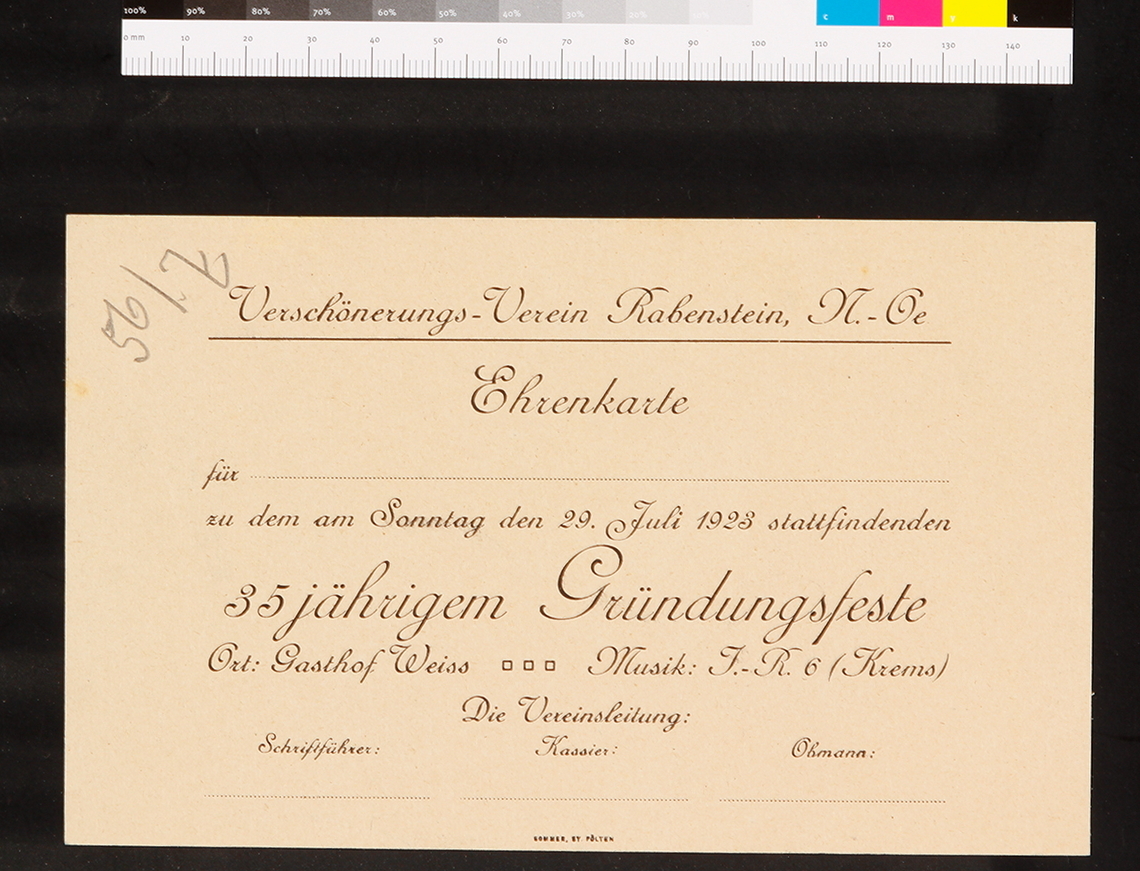 100% 90% 80% 70% 60% 50% 40% 30% 20% 10% c m y k
0 mm 10 20 30 40 50 60 70 80 90 100 110 120 130 140
56/72
Verschönerungs-Verein Rabenstein, N.-Oe
Ehrenkarte
für
zu dem am Sonntag den 29. Juli 1923 stattfindenden
35jährigem Gründungsfeste
Ort: Gasthof Weiss □□□ Musik: I.-R. 6 (Krems)
Die Vereinsleitung:
Schriftführer: Kassier: Obmann:
SOMMER, ST. PÖLTEN